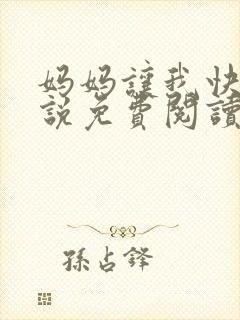 妈妈讓我快
說免費閱讀
孫占鋒